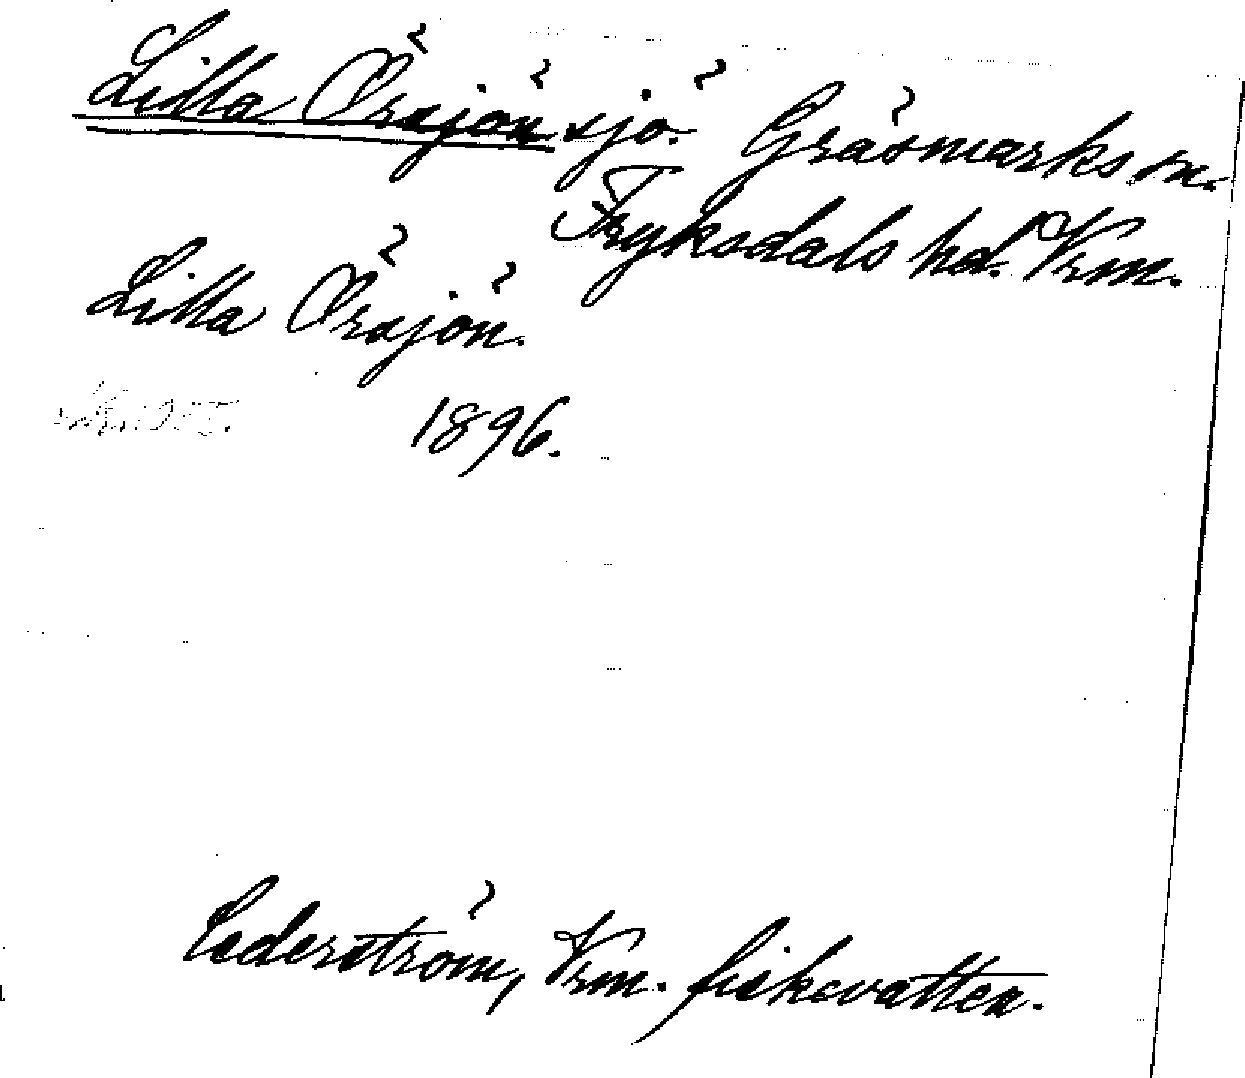 Lilla Örsjön sjö. Gräsmarks sn.
Fryksdals hd. Vrm.
Lilla Örsjön.
1896.
Cederström, Vrm. fiskevatten.